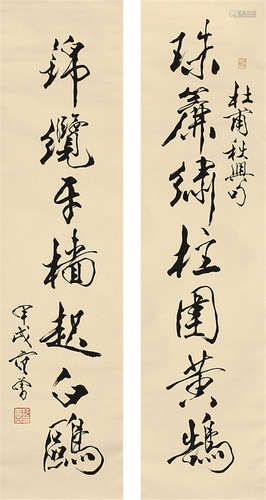 杜甫秋興句
珠簾繡柱圍黃鵠
錦纜牙檣起白鷗
甲戌 范曾